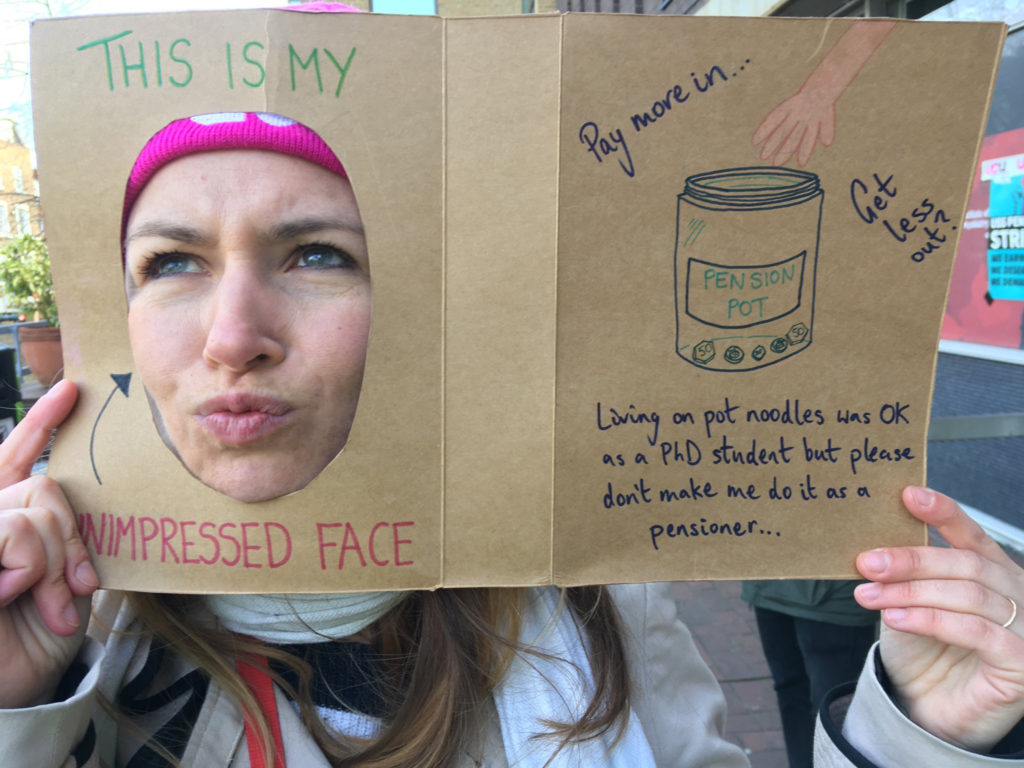 THIS IS MY
UNIMPRESSED FACE
Pay more in...
Get
less
out?
PENSION
POT
50
50
Living on pot noodles was OK
as a PhD student but please
don't make me do it as a
pensioner...
UCU